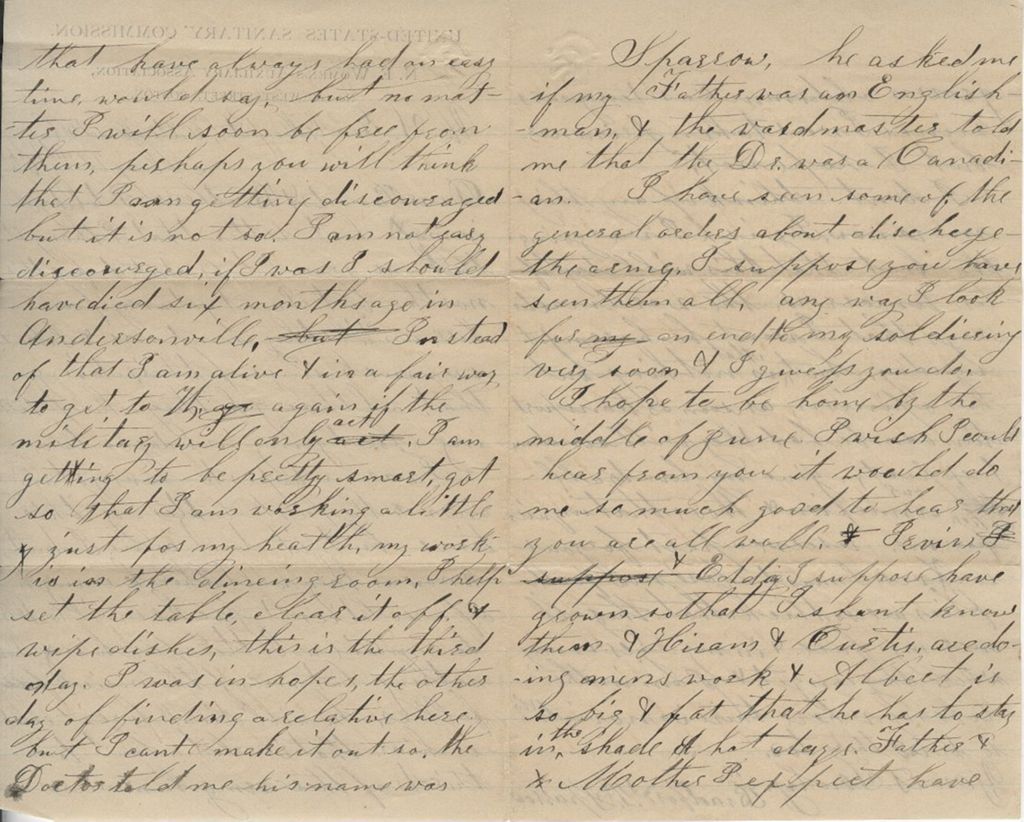 that have always had an easy
time, would say, but no mat-
-ter I will soon be free from
them, perhaps you will think
that I am getting discouraged
but it is not so. I am not easy
discouraged, if I was I should
have died six months ago in
Andersonville, but Instead
of that I am alive & in a fair way
to get to again if the
military will only act act. I am
getting to be pretty smart, got
so that I am working a little
just for my health, my work
is in the dineing room, I help
set the table, clear it off &
wipe dishes, this is the third
day. I was in hopes, the other
day of finding a relative here
but I cant make it out so. the
Doctor told me his name was
Sparrow, he asked me
if my Father was an English-
-man, & the wardmaster told
me that the Dr. was a Canadi-
-an. I have seen some of the
general orders about discherge
the army, I suppose you have
seen them all, any way I look
for my an end to my soldiering
very soon & I guess you do.
I hope to be home by the
middle of June I wish I could
hear from you it would do
me so much good to hear that
you are all well. & Irvin &
suppose & Eddy I suppose have
grown so that I shant know
them & Hiram & Curtis, are do-
-ing mens work & Albert is
so big & fat that he has to stay
in the shade hot days. Father &
Mother I expect have
UNITED STATES SANITARY COMMISSION.
N. E. WOMEN'S AUXILIARY ASSOCIATION,